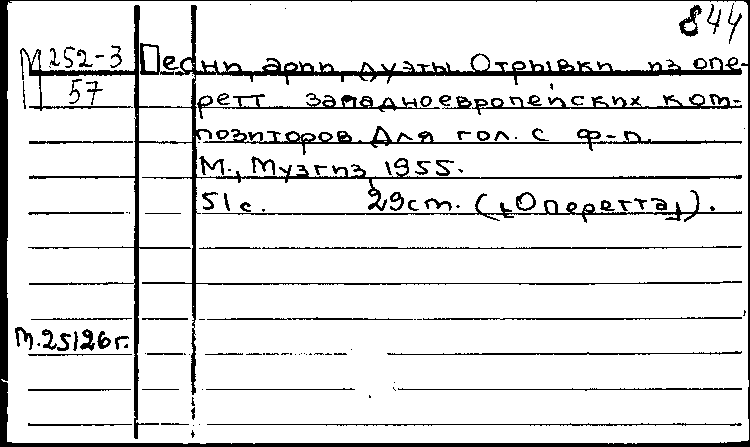 844
М 252-3
57
Песни, арии, дуэты. Отрывки из опе-
ретт западноевропейских ком-
позиторов. Для гол. с ф-п.
М., Музгиз, 1955.
51 с. 29 cm. („Оперетта“).
М.25126г.